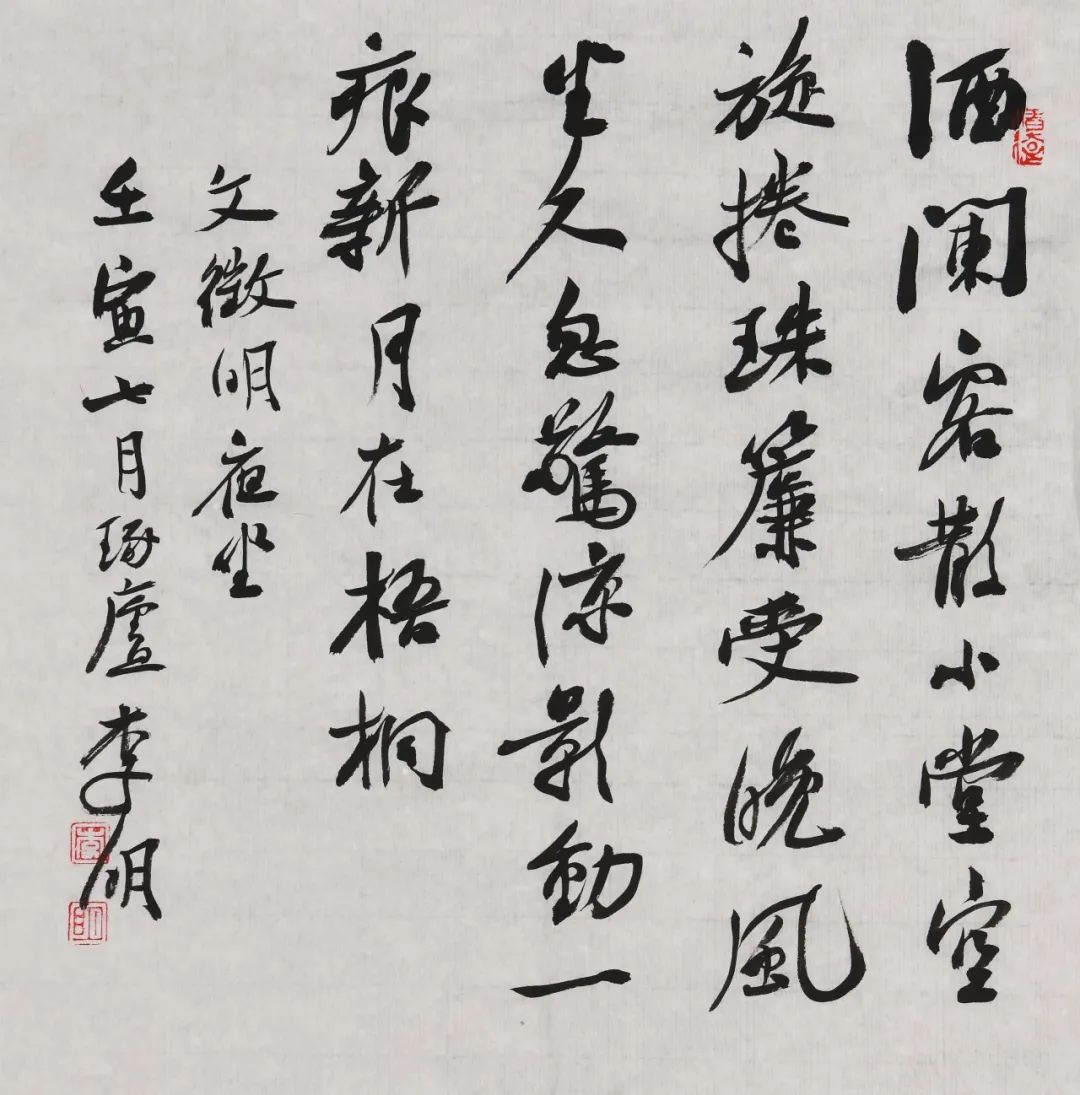 酒闌客散小堂空
旋捲珠簾受晚風
坐久忽驚涼影動一
痕新月在梧桐
文徵明夜坐
壬寅七月琢廬李明